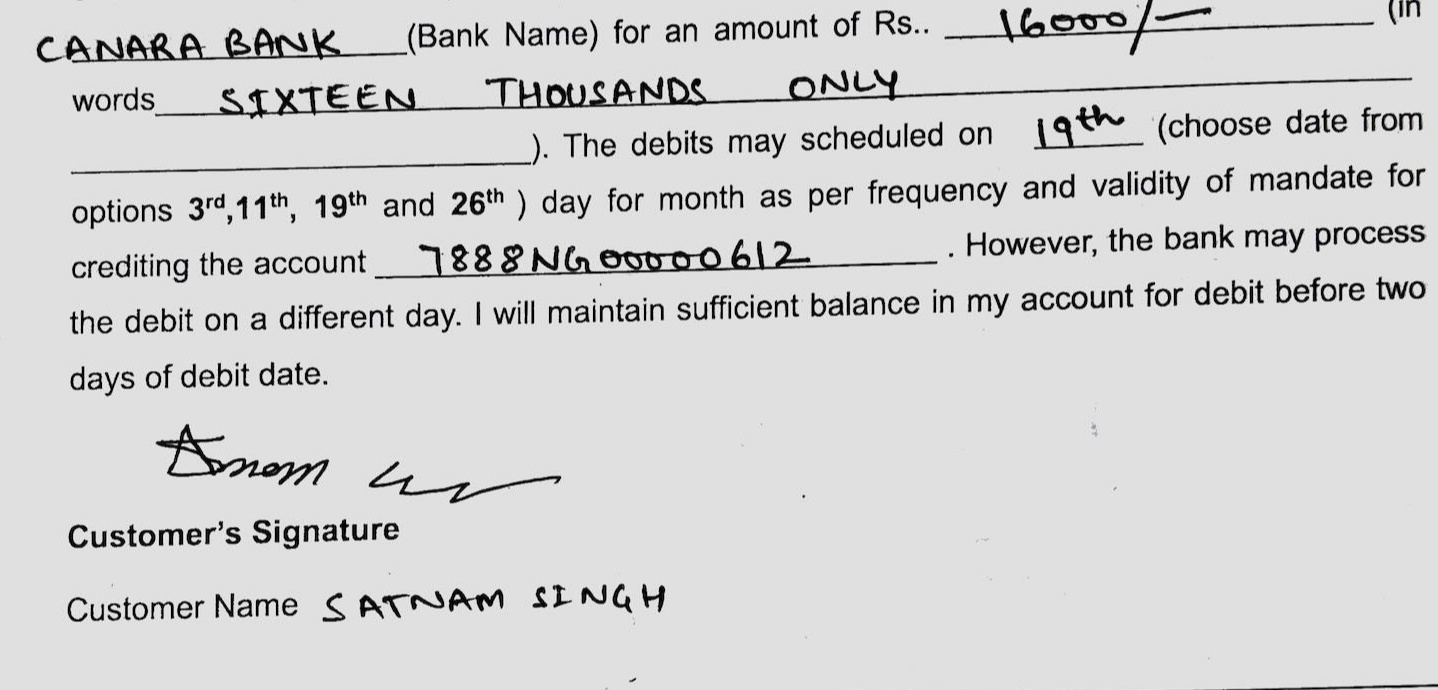 CANARA BANK (Bank Name) for an amount of Rs.. 16000/- (in
words SIXTEEN THOUSANDS ONLY
). The debits may scheduled on 19th (choose date from
options 3rd,11th, 19th and 26th ) day for month as per frequency and validity of mandate for
crediting the account 7888NG00000612 . However, the bank may process
the debit on a different day. I will maintain sufficient balance in my account for debit before two
days of debit date.
Customer's Signature
Customer Name SATNAM SINGH